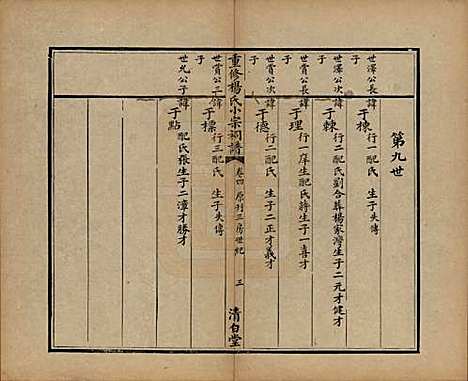 第九世
世澤公長諱
于棟
行一配氏 生子失傳
子
世澤公次諱
于棘
行二配氏劉合葬楊家灣生子二元才健才
子
世賞公長諱
于理
行一庠生配氏蔣生子一喜才
子
世賞公次諱
于德
行二配氏 生子二正才義才
子
重修楊氏小宗祠譜
卷四 原刊三房世紀
三
清白堂
世賞公三諱
于標
行三配氏 生子失傳
子
世允公子諱
于點
配氏張生子二漳才勝才
子